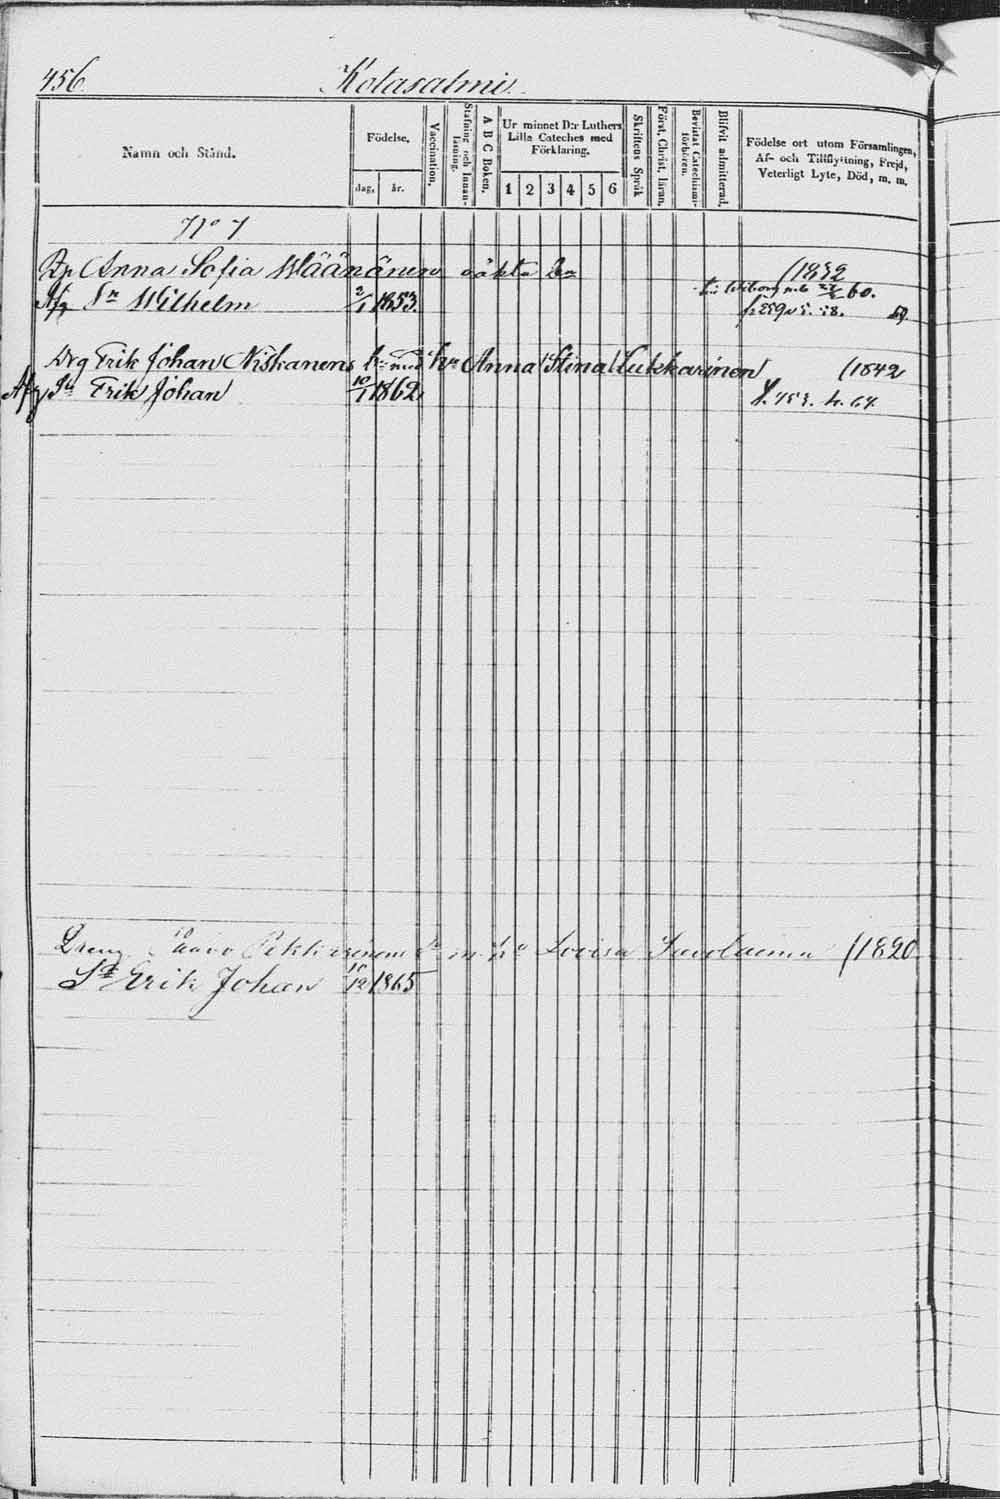 456.
Kotasalmi.
Namn och Stånd.
Födelse.
dag. år.
Vaccination.
Stafning och Innanläsning.
A B C Boken.
Ur minnet D:r Luthers Lilla Cateches med Förklaring.
1 2 3 4 5 6
Skriftens Språk
Först. Christ. läran.
Bevistat Catechismiförhören.
Blifvit admitterad.
Födelse ort utom Församlingen, Af- och Tillflyttning, Frejd, Veterligt Lyte, Död, m. m.
No 7
Anna Sofia Wäänänen oäkta (1832
Sn Wilhelm 2/1 1853. 60.
Drg Erik Johan Niskanens med Anna Stina Lukkarinen (1842
Afg Sn Erik Johan 10/1 1862.
Dreng Paavo Lovisa (1820
Sn Erik Johan 1865